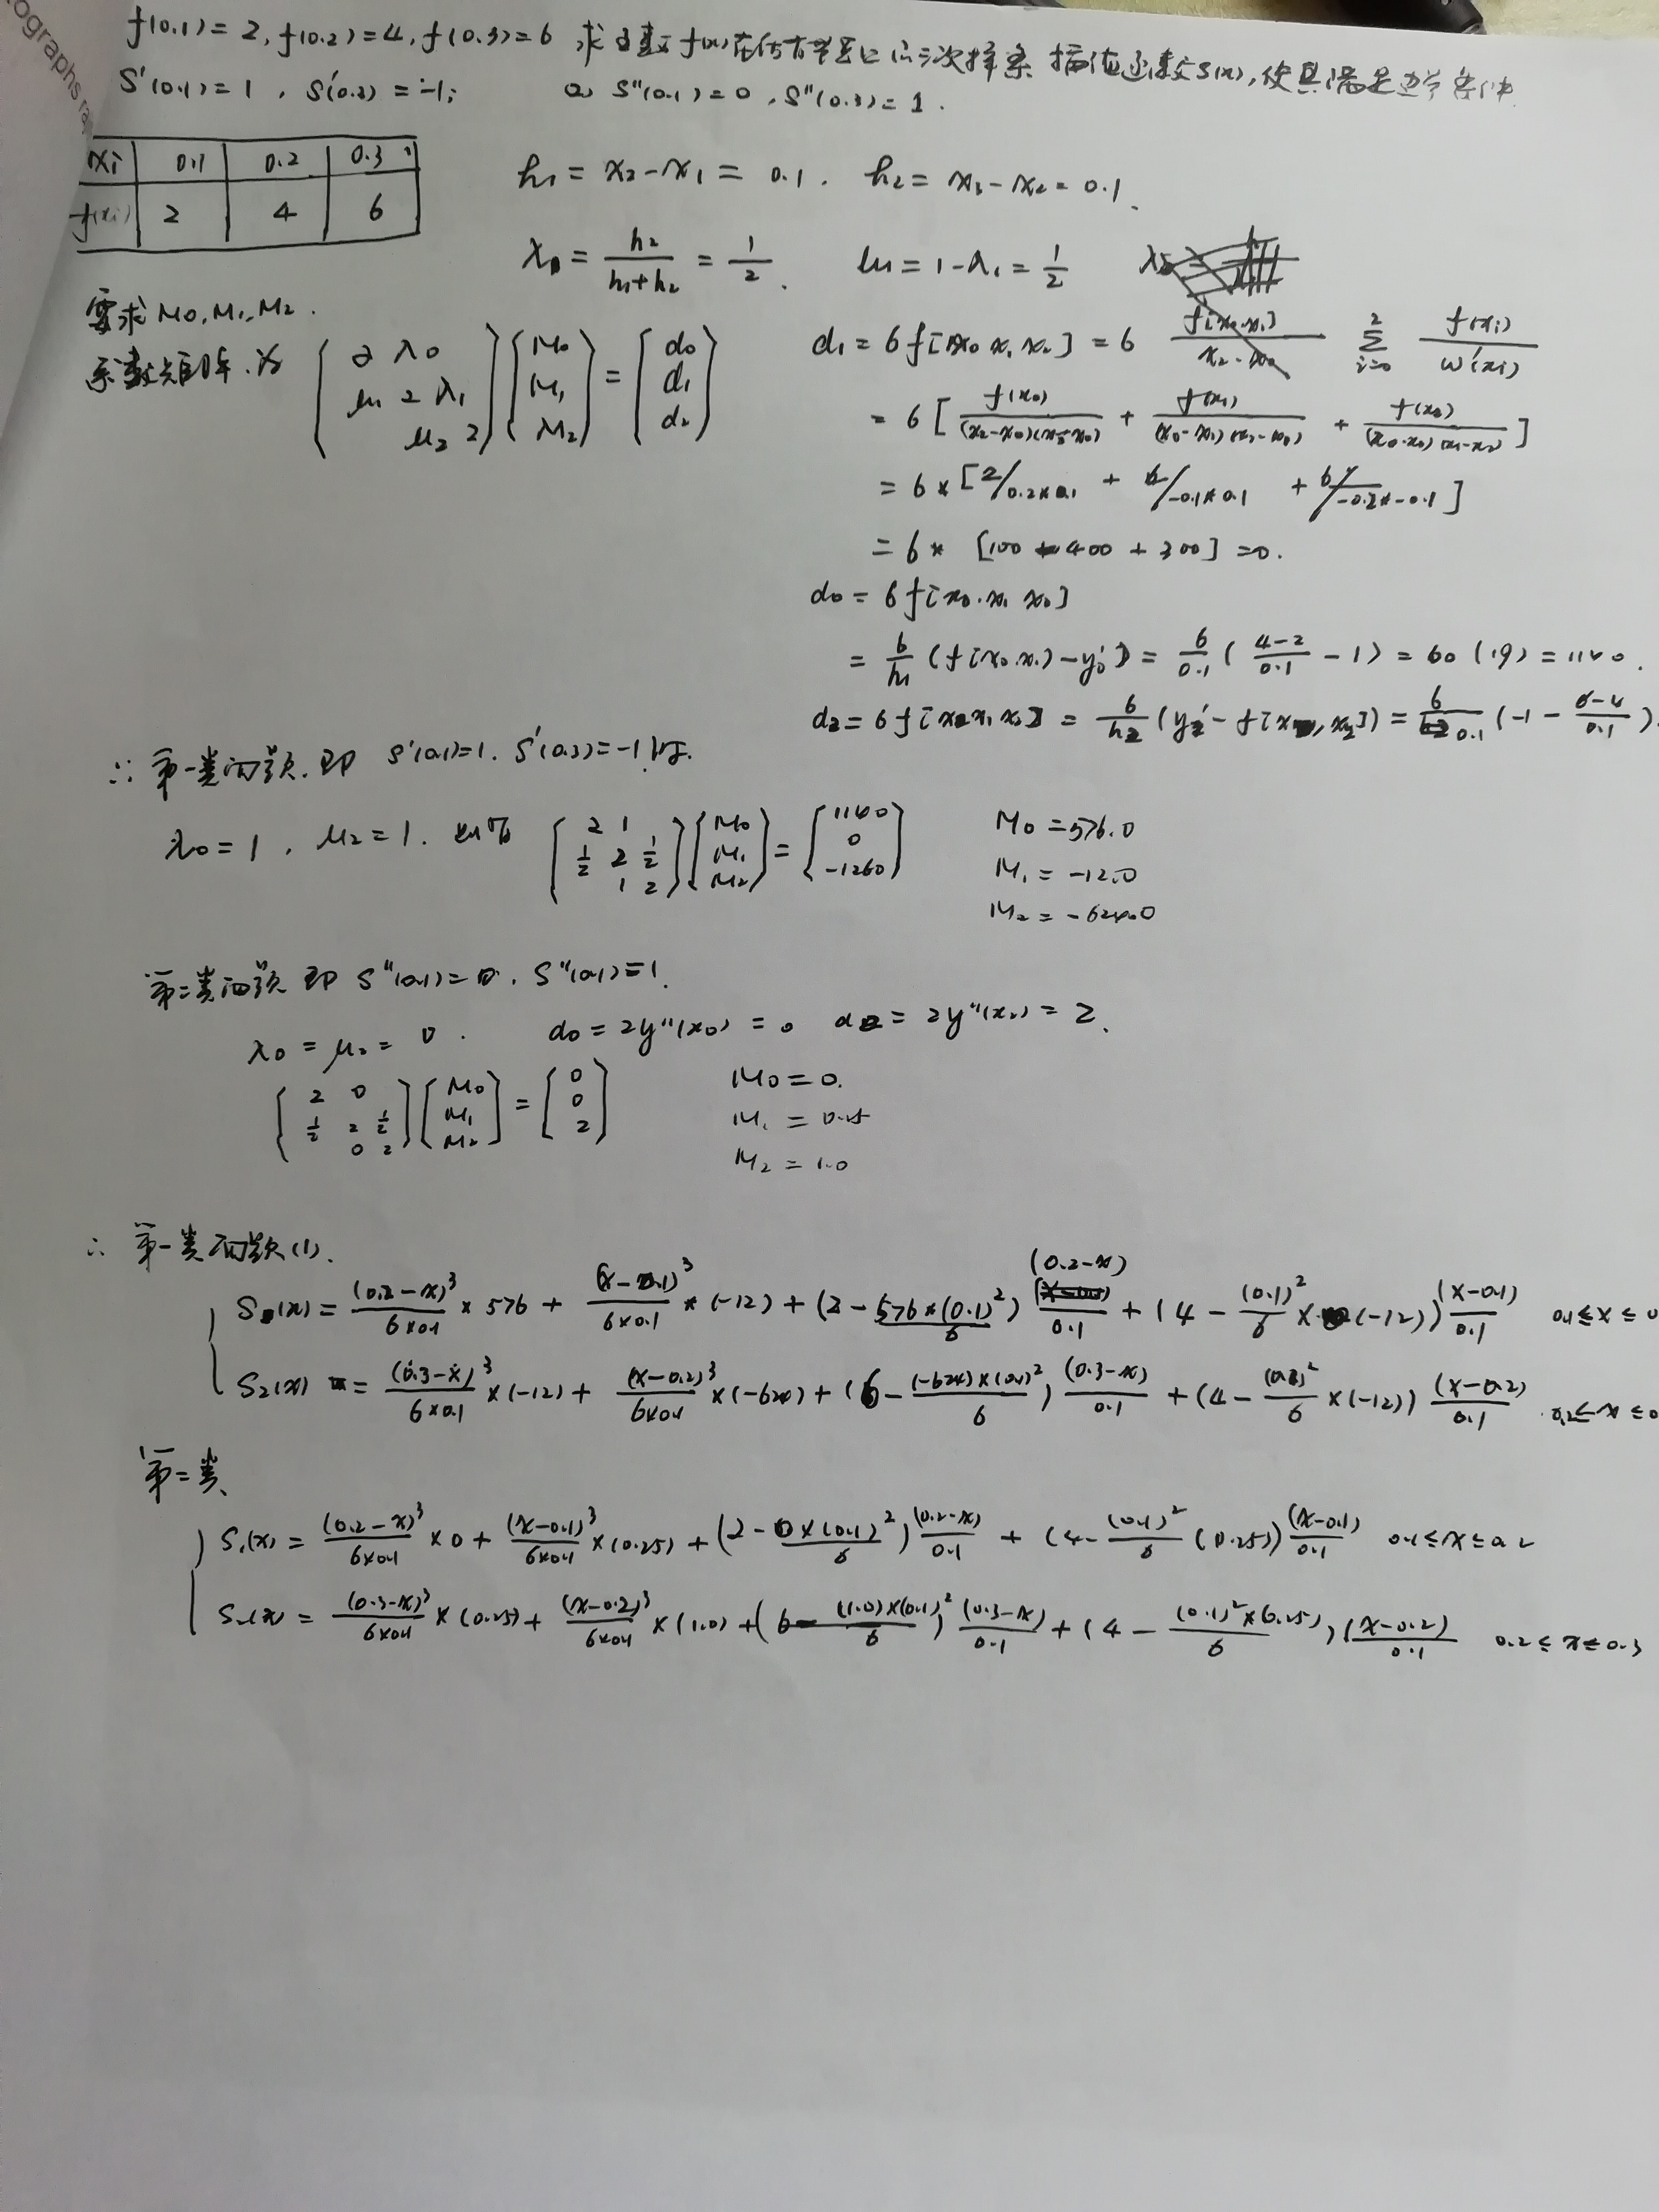 ographs
f(0.1)=2, f(0.2)=4, f(0.3)=6, 求函数f(x)在所有学区上的三次样条插值函数S(x), 使其满足边界条件
S'(0.1)=1, S'(0.3)=-1; ② S''(0.1)=0, S''(0.3)=1.
xi 0.1 0.2 0.3
f(xi) 2 4 6
h₁ = x₂-x₁ = 0.1. h₂ = x₃-x₂ = 0.1.
λ₁ = h₂/(h₁+h₂) = 1/2. μ₁ = 1-λ₁ = 1/2
要求 M₀, M₁, M₂.
系数矩阵为 (2 λ₀; μ₁ 2 λ₁; μ₂ 2)(M₀; M₁; M₂) = (d₀; d₁; d₂)
d₁ = 6f[x₀ x₁ x₂] = 6 Σ_{i=0}^{2} f(xi)/ω'(xi)
= 6 [ f(x₀)/((x₂-x₀)(x₁-x₀)) + f(x₁)/((x₀-x₁)(x₂-x₀)) + f(x₂)/((x₀-x₂)(x₁-x₂)) ]
= 6 * [2/0.2*0.1 + 4/-0.1*0.1 + 6/-0.2*-0.1]
= 6 * [100 - 400 + 300] = 0.
d₀ = 6f[x₀.x₁ x₀]
= 6/h₁ (f[x₀.x₁]-y₀') = 6/0.1 ( (4-2)/0.1 - 1) = 60 (19) = 1140.
d₂ = 6f[x₂x₁x₂] = 6/h₂ (y₂' - f[x₁, x₂]) = 6/0.1 (-1 - (6-4)/0.1).
∴ 第一类问题, 即 S'(0.1)=1. S'(0.3)=-1时.
λ₀=1, μ₂=1. (2 1; 1/2 2 1/2; 1 2)(M₀; M₁; M₂) = (1140; 0; -1260) M₀ = 576.0
M₁ = -12.0
M₂ = -624.0
第二类问题 即 S''(0.1)=0. S''(0.1)=1.
λ₀ = μ₂ = 0. d₀ = 2y''(x₀) = 0 d₂ = 2y''(x₂) = 2.
(2 0; 1/2 2 1/2; 0 2)(M₀; M₁; M₂) = (0; 0; 2) M₀ = 0.
M₁ = 0.25
M₂ = 1.0
∴ 第一类问题(1).
S₁(x) = (0.2-x)³/(6×0.1) × 576 + (x-0.1)³/(6×0.1) * (-12) + (2 - 576*(0.1)²/6) (0.2-x)/0.1 + (4 - (0.1)²/6 × (-12)) (x-0.1)/0.1 0.1≤x≤0
S₂(x) = (0.3-x)³/(6×0.1) × (-12) + (x-0.2)³/(6×0.1) × (-624) + (6 - (-624)×(0.1)²/6) (0.3-x)/0.1 + (4 - (0.1)²/6 × (-12)) (x-0.2)/0.1 0.2≤x≤0
第二类
S₁(x) = (0.2-x)³/(6×0.1) × 0 + (x-0.1)³/(6×0.1) × (0.25) + (2 - 0×(0.1)²/6) (0.2-x)/0.1 + (4 - (0.1)²/6 (0.25)) (x-0.1)/0.1 0.1≤x≤0.2
S₂(x) = (0.3-x)³/(6×0.1) × (0.25) + (x-0.2)³/(6×0.1) × (1.0) + (6 - (1.0)×(0.1)²/6) (0.3-x)/0.1 + (4 - (0.1)²×(0.25)/6) (x-0.2)/0.1 0.2≤x≤0.3